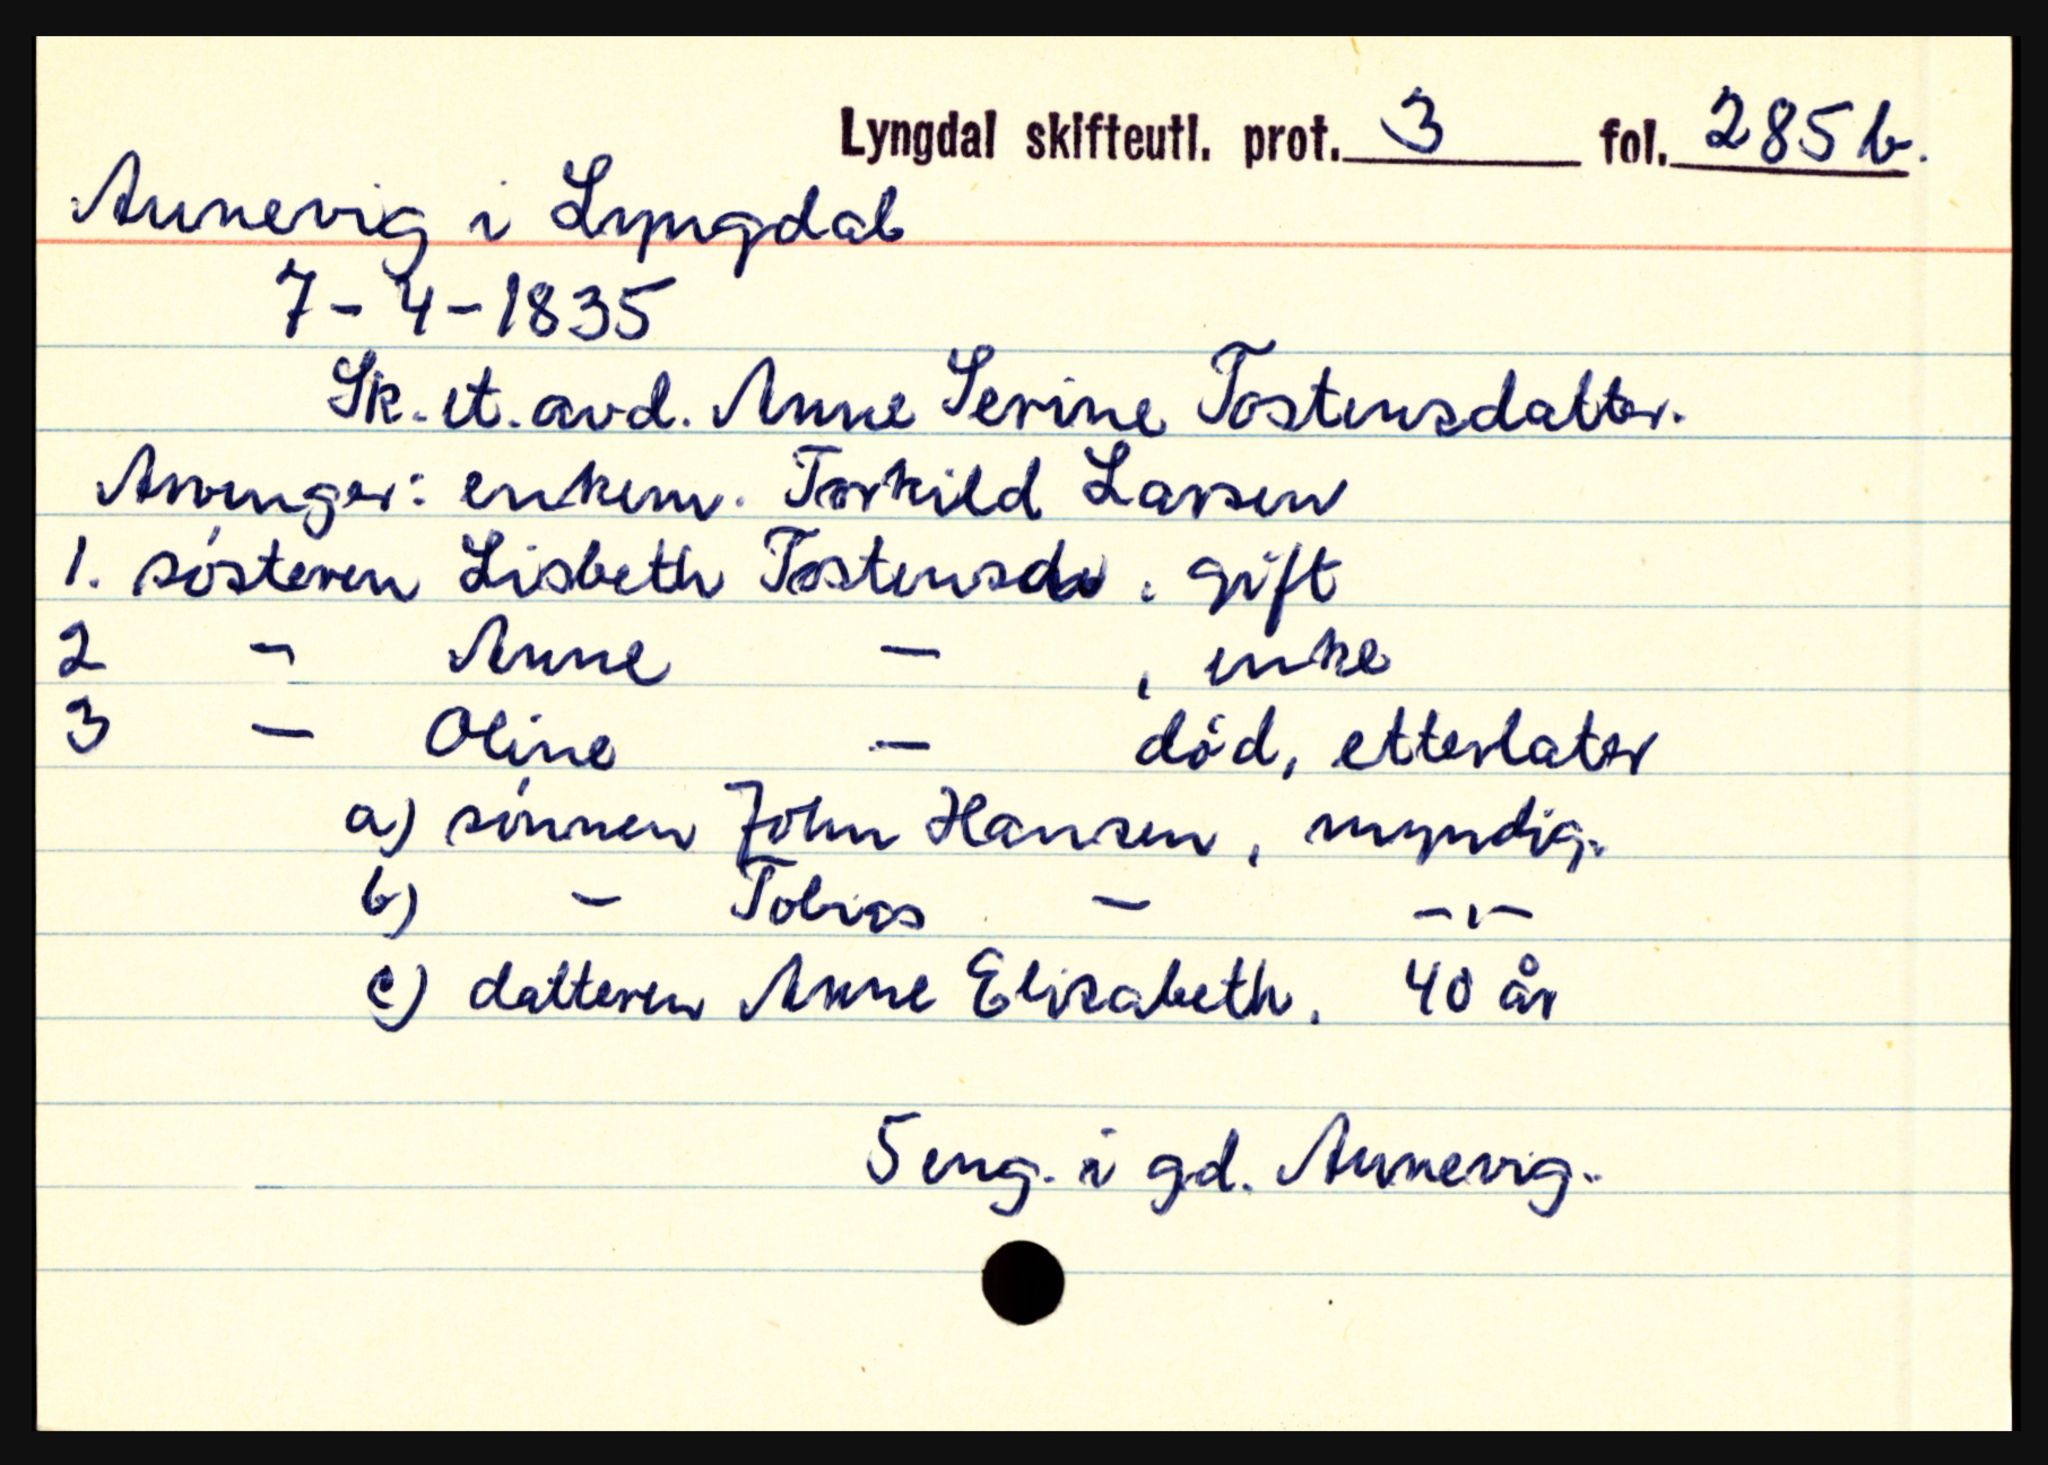 Lyngdal skifteutl. prot. 3 fol. 285 b.
Aunevig i Lyngdal
7-4-1835
Sk. et. avd. Anne Serine Tostensdatter.
Arvinger: enkem. Torkild Larsen
1. søsteren Lisbeth Tostensdr. gift
2 - Anne - , enke
3 - Oline - død, etterlater
a) sønnen John Hansen, myndig.
b) - Tobias - -,-
c) datteren Anne Elisabeth. 40 år
5 eng. i gd. Aunevig.